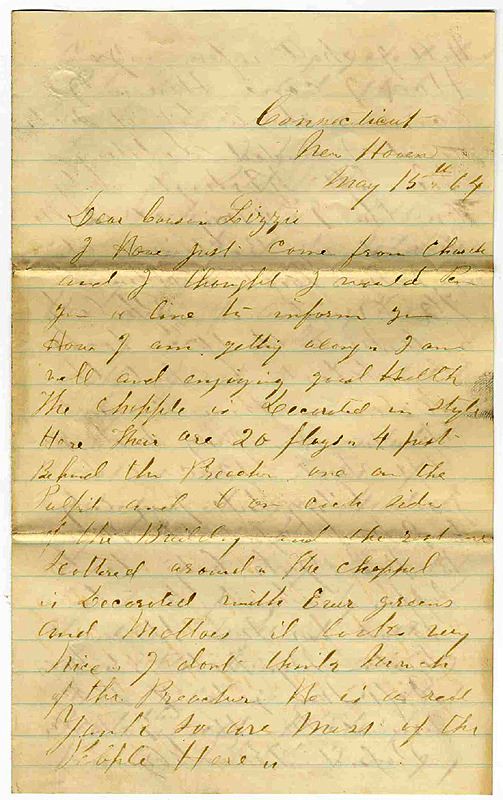 Connecticut
New Haven
May 15th 64
Dear Cousin Lizzie
I Have just come from Church
and I thought I would Pen
you a line to inform you
How I am getting along. I am
well and enjoying good Health
The Chapple is Decorated in style
Here Their are 20 flags. 4 just
Behind the Preacher one on the
Pulpit and 6 on each side
of the Building and the rest are
scattered around. The Chappel
is Decorated with Ever greens
And Mottoes it looks very
Nice. I dont think much
of the Preacher He is a red
Yank so are Most of the
People Here